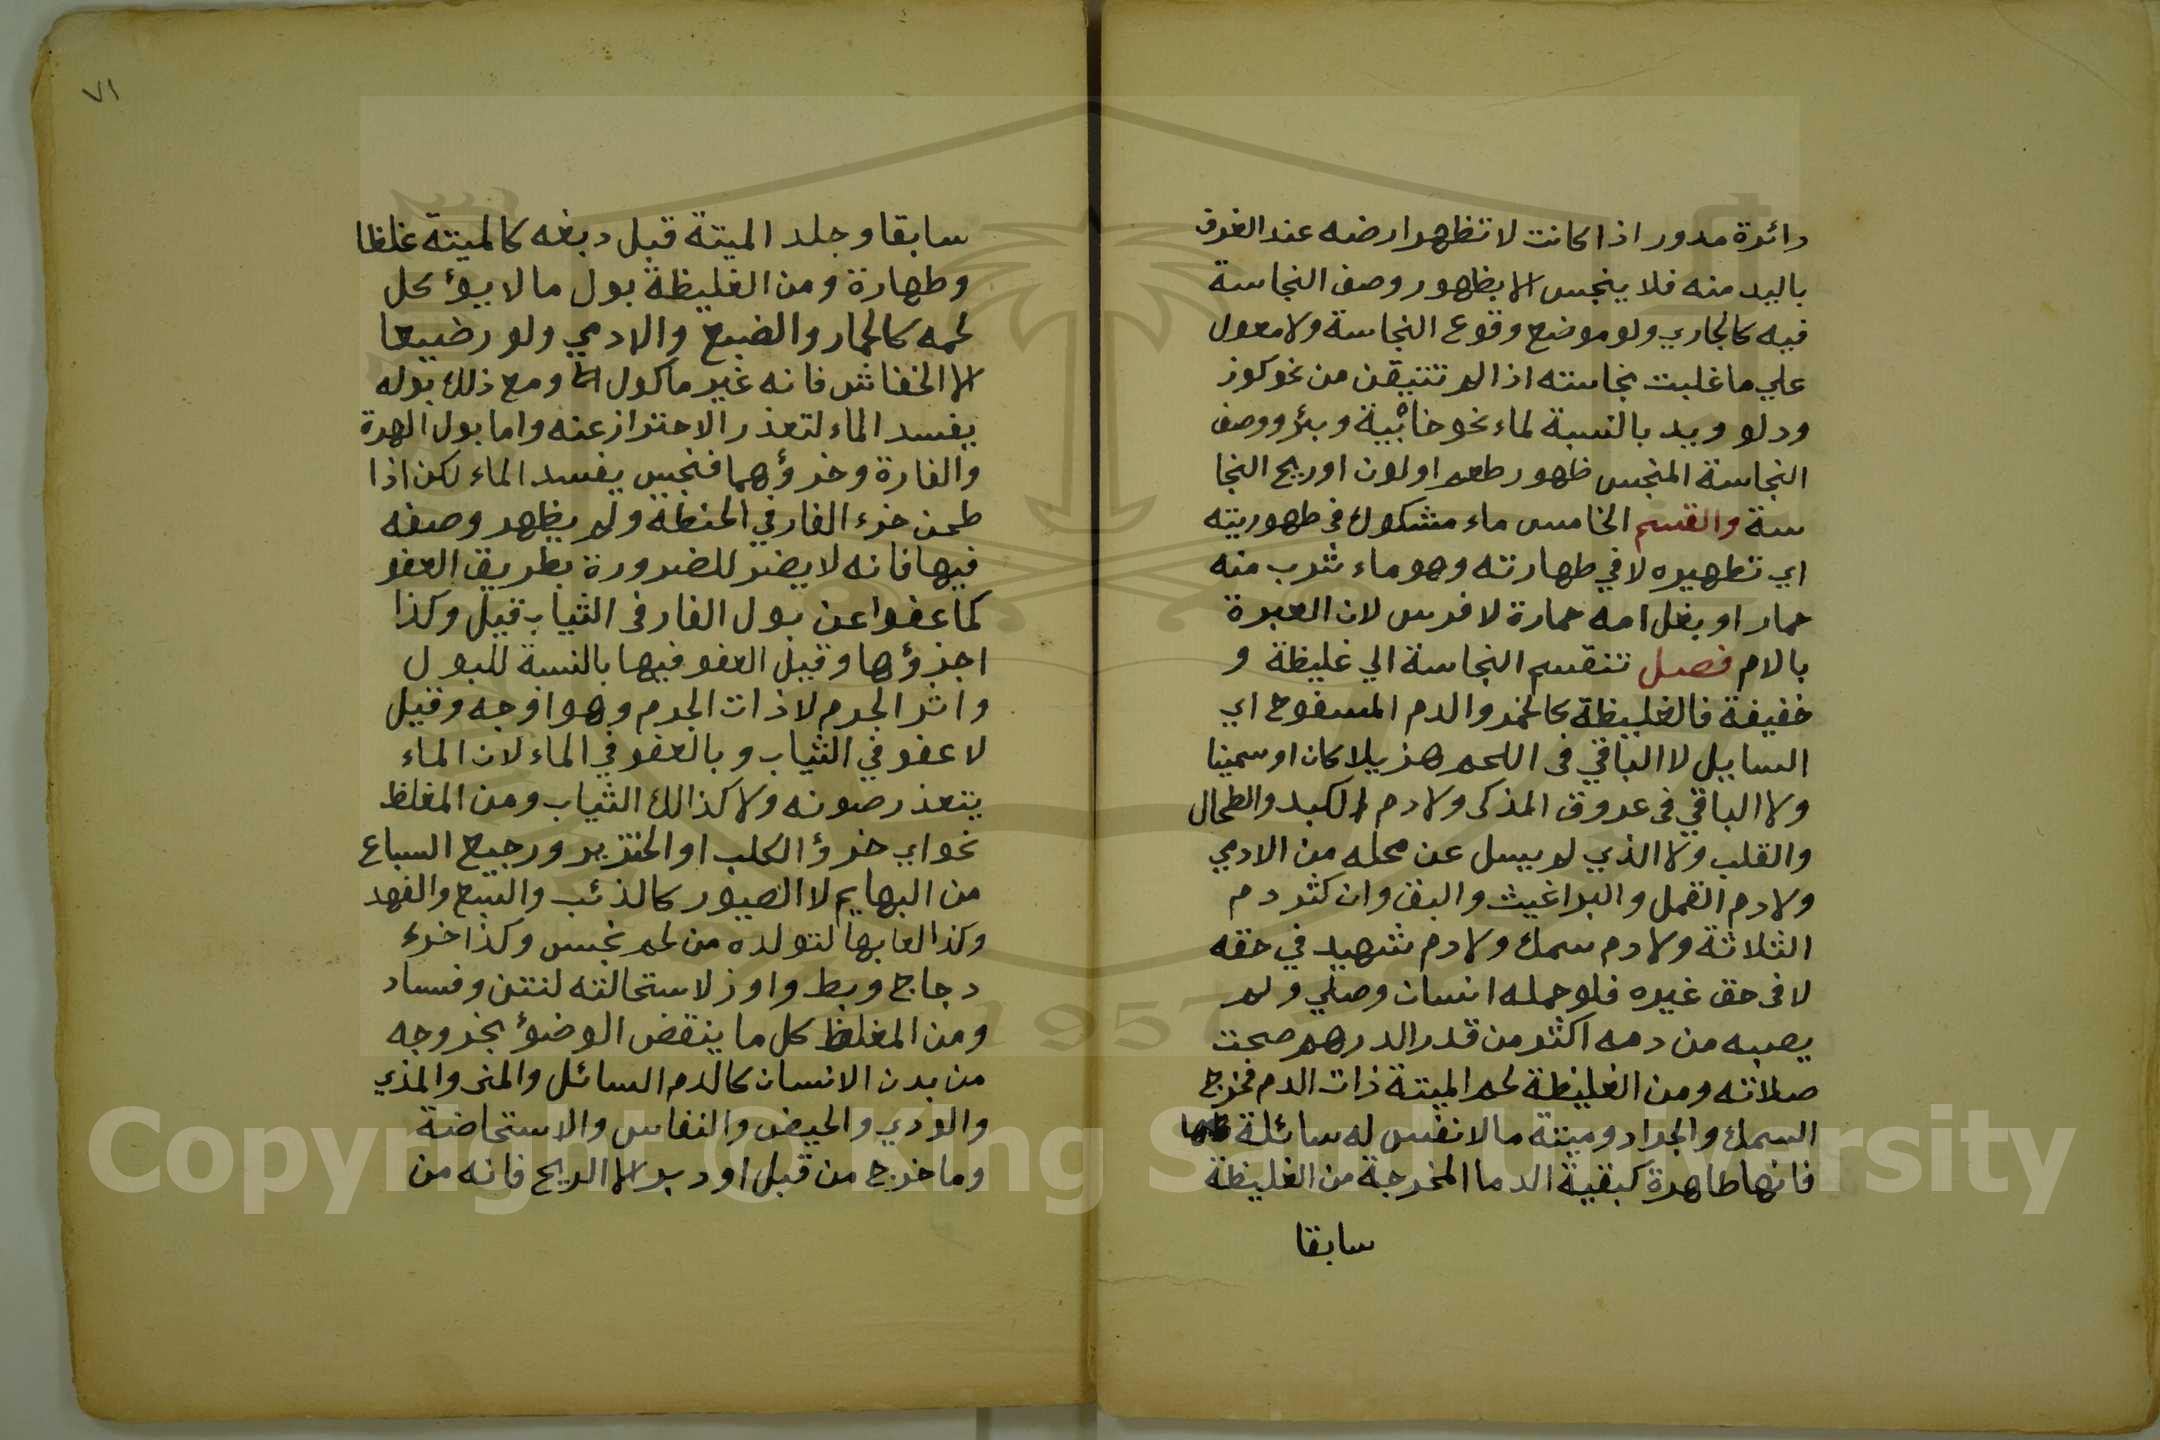 دائرة مدور اذا كانت لا تظهر ارضه عند الغرف
باليد منه فلا ينجس الا بظهور وصف النجاسة
فيه كالجاري ولو موضع وقوع النجاسة ولا معول
علي ما غلبت نجاسته اذا لم تتيقن من نحو كوز
ودلو ويد بالنسبة لماء نحو خابئية وبئر ووصف
النجاسة المنجس ظهور طعم او لون او ريح النجا
سة والقسم الخامس ماء مشكوك في طهوريته
اي تطهيره لا في طهارته وهو ماء شرب منه
حمار او بغل امه حمارة لا فرس لان العبرة
بالام فصل تنقسم النجاسة الي غليظة و
خفيفة فالغليظة كالخمر والدم المسفوح اي
السايل لا الباقي في اللحم هزيلا كان او سمينا
ولا الباقي في عروق المذكى ولا دم الكبد والطحال
والقلب ولا الذي لم يسل عن محله من الادمي
ولا دم القمل والبراغيث والبق وان كثر دم
الثلاثة ولا دم سمك ولا دم شهيد في حقه
لا في حق غيره فلو حمله انسان وصلي ولم
يصبه من دمه اكثر من قدر الدرهم صحت
صلاته ومن الغليظة لحم الميتة ذات الدم فخرج
السمك والجراد وميتة ما لا نفس له سائلة
فانها طاهرة كبقية الدما المخرجة من الغليظة
سابقا
٧١
سابقا وجلد الميتة قبل دبغه كالميتة غلظا
وطهارة ومن الغليظة بول ما لا يؤكل
لحمه كالحمار والضبع والادمي ولو رضيعا
الا الخفاش فانه غير ماكول ومع ذلك بوله
يفسد الماء لتعذر الاحتراز عنه واما بول الهرة
والفارة وخرؤهما فنجس يفسد الماء لكن اذا
طحن خرء الفار في الحنطة ولم يظهر وصفه
فيها فانه لا يضر للضرورة بطريق العفو
كما عفوا عن بول الفار في الثياب قيل وكذا
اجزؤها وقيل العفو فيها بالنسة للبول
واثر الجرم لا ذات الجرم وهو اوجه وقيل
لا عفو في الثياب وبالعفو في الماء لان الماء
يتعذر صونه ولا كذالك الثياب ومن المغلظ
نحو اي خرؤ الكلب او الخنزير ورجيع السباع
من البهايم لا الطيور كالذئب والسبع والفهد
وكذا لعابها لتولده من لحم نجس وكذا خرء
دجاج وبط واوز لاستحالته لنتن وفساد
ومن المغلظ كل ما ينقض الوضؤ بخروجه
من بدن الانسان كالدم السائل والمنى والمذي
والودي والحيض والنفاس والاستحاضة
وما خرج من قبل او دبر الا الريح فانه من
1957
Copyright © King Saud University